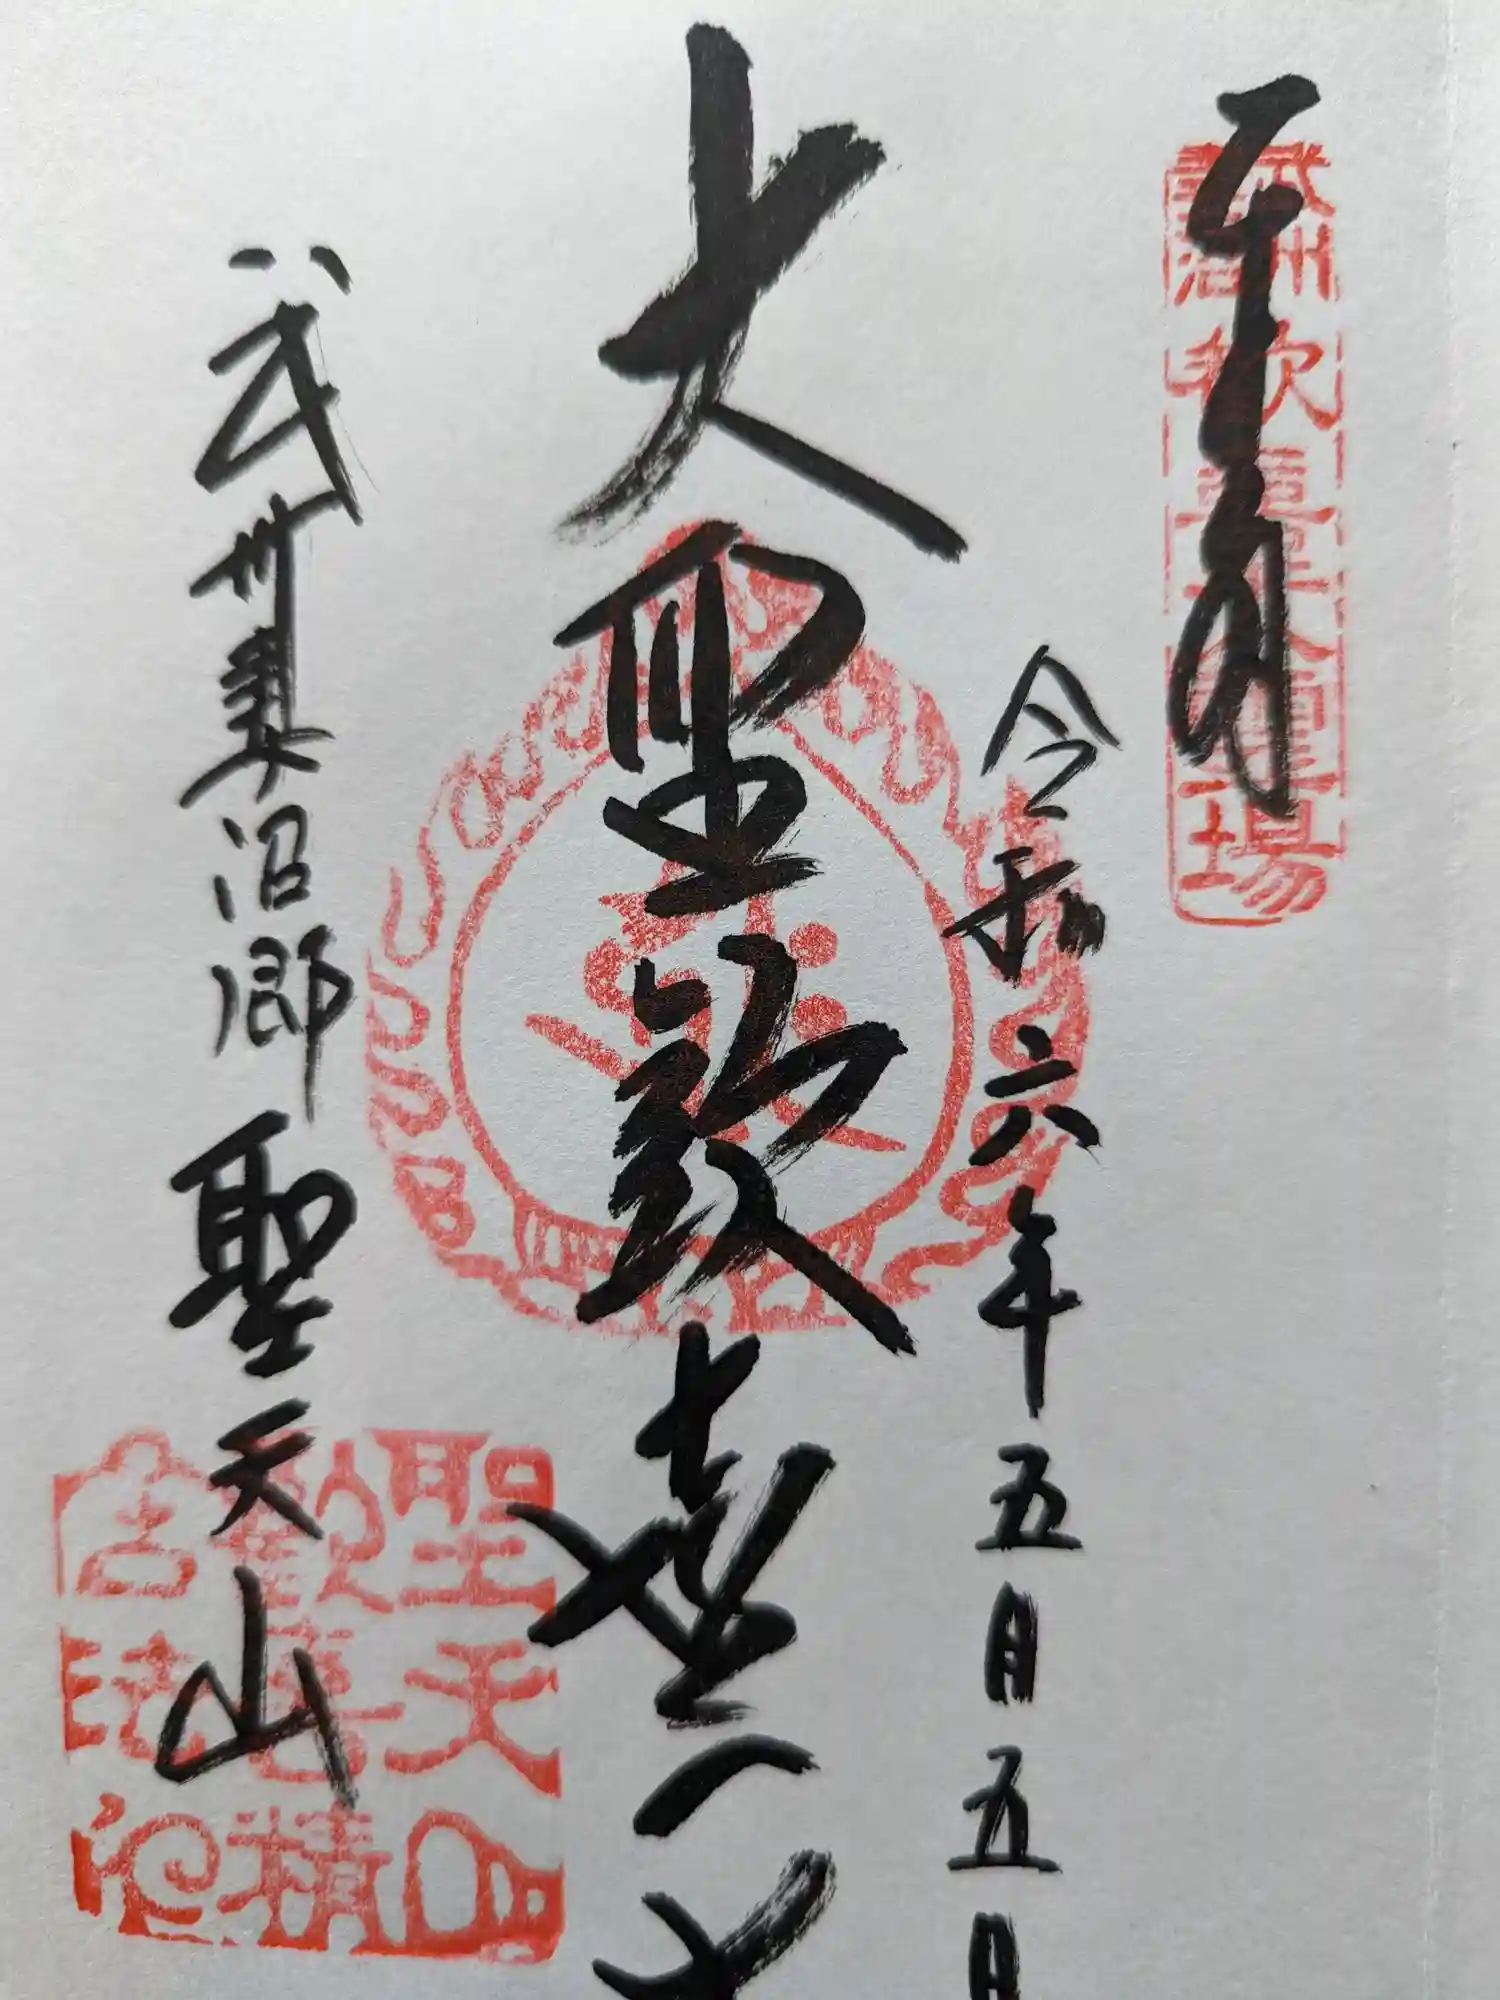 奉拝
令和六年五月五日
大聖歓喜天
武州妻沼郷
聖天山
武州
妻沼
歓喜天霊場
聖天山
歓喜精